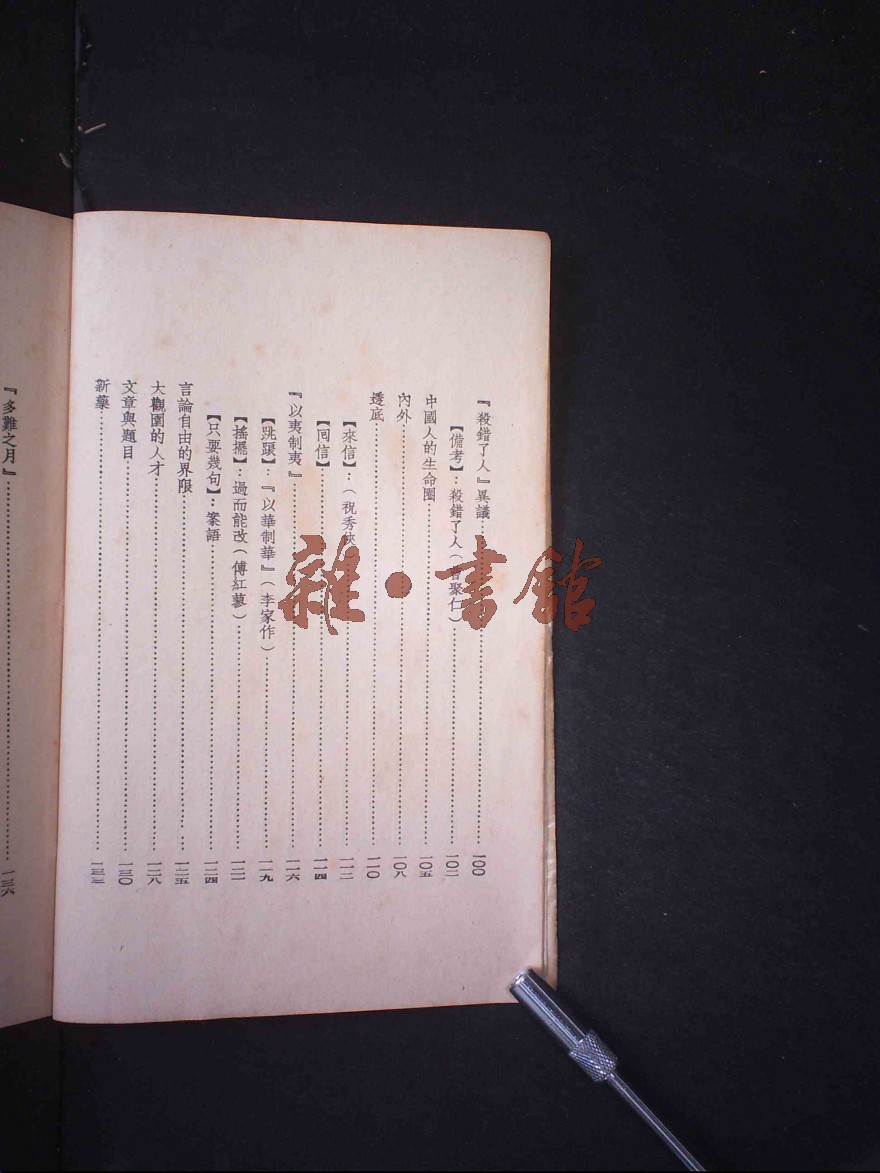 『殺錯了人』異議……一〇〇
【備考】：殺錯了人（曹聚仁）……一〇二
中國人的生命圈……一〇五
內外……一〇八
透底……一一〇
【來信】：（祝秀俠）……一一二
【回信】……一一四
『以夷制夷』……一一六
【跳踉】：『以華制華』（李家作）……一一九
【搖擺】：過而能改（傅紅蓼）……一二一
【只要幾句】：案語……一二四
言論自由的界限……一二五
大觀園的人才……一二八
文章與題目……一三〇
新藥……一三三
『多難之月』……一三六
雜·書館